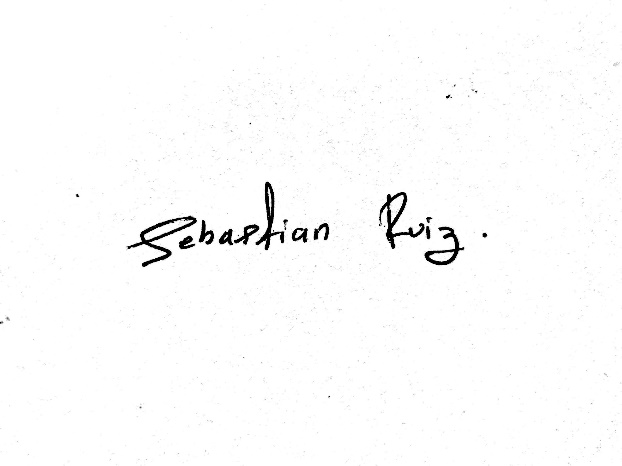 Sebastian Ruiz.